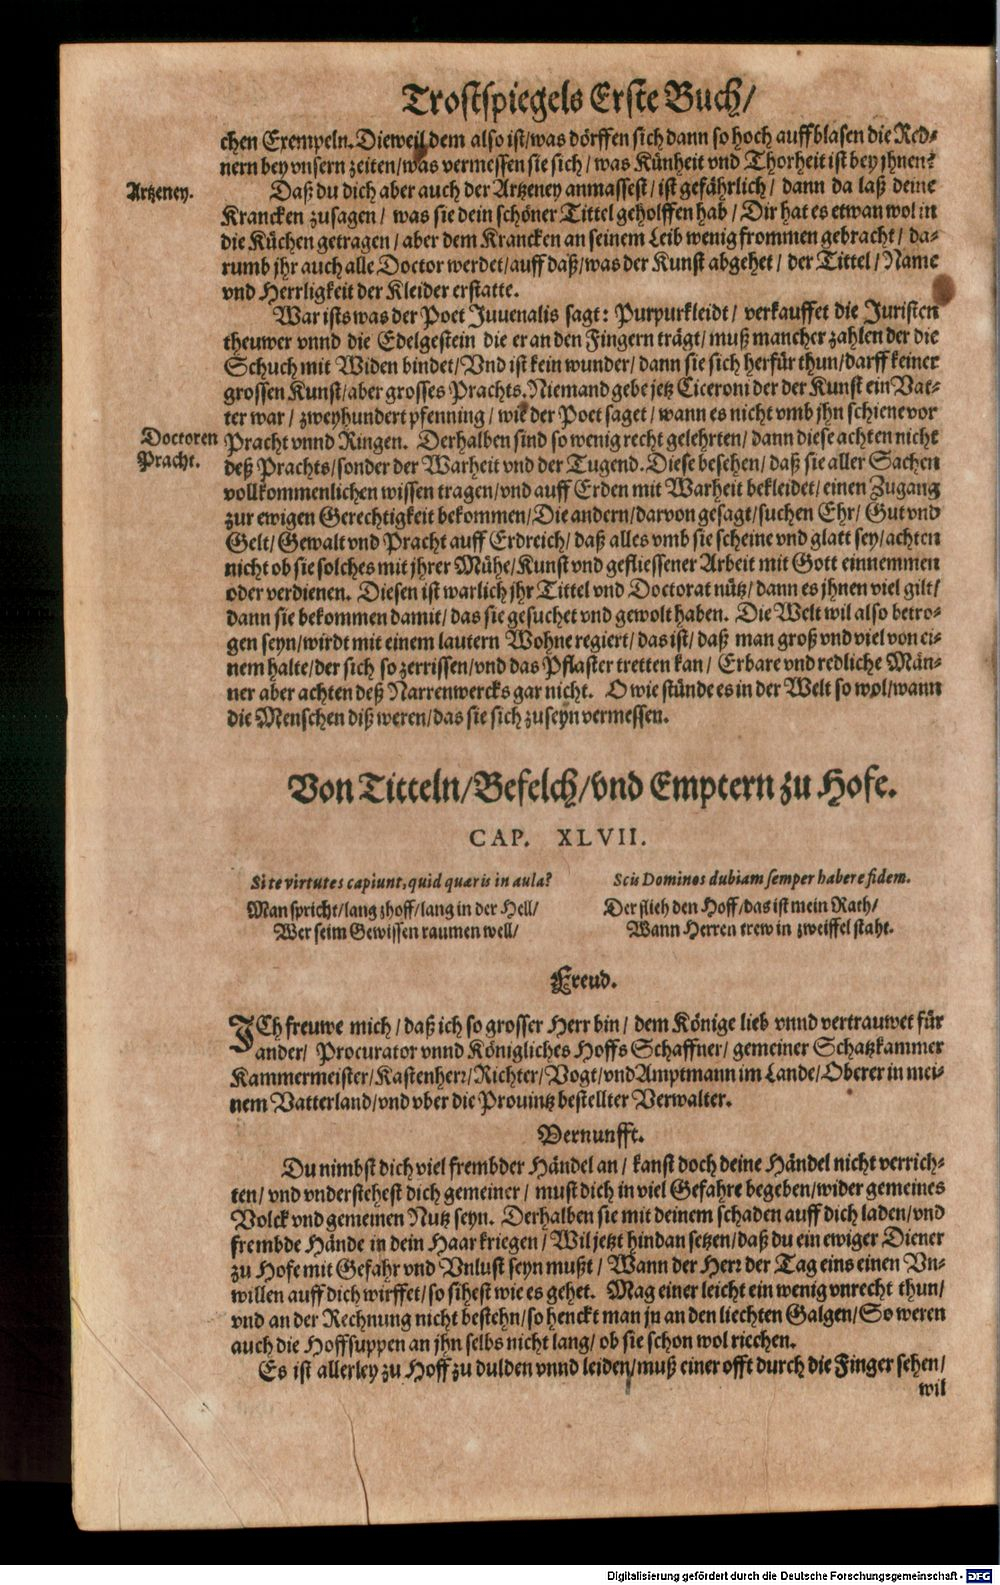 Trostspiegels Erste Buch/
chen Exempeln. Dieweil dem also ist/was dörffen sich dann so hoch auffblasen die Red-
nern bey vnsern zeiten/was vermessen sie sich/ was Künheit vnd Thorheit ist bey jhnen?
Artzeney.
Daß du dich aber auch der Artzeney anmassest/ ist gefährlich/ dann da laß deine
Krancken zusagen/ was sie dein schöner Tittel geholffen hab/ Dir hat es etwan wol in
die Küchen getragen/ aber dem Krancken an seinem Leib wenig frommen gebracht/ da-
rumb jhr auch alle Doctor werdet/auff daß/was der Kunst abgehet/ der Tittel/ Name
vnd Herrligkeit der Kleider erstatte.
War ists was der Poet Juuenalis sagt: Purpurkleidt/ verkauffet die Juristen
theuwer vnnd die Edelgestein die er an den Fingern trägt/ muß mancher zahlen der die
Schuch mit Widen bindet/Vnd ist kein wunder/ dann sie sich herfür thun/darff keiner
grossen Kunst/aber grosses Prachts. Niemand gebe jetz Ciceroni der der Kunst ein Vat-
ter war/ zweyhundert pfenning/ wie der Poet saget/ wann es nicht vmb jhn schiene vor
Doctoren
Pracht.
Pracht vnnd Ringen. Derhalben sind so wenig recht gelehrten/ dann diese achten nicht
deß Prachts/sonder der Warheit vnd der Tugend. Diese besehen/ daß sie aller Sachen
vollkommenlichen wissen tragen/vnd auff Erden mit Warheit bekleidet/einen Zugang
zur ewigen Gerechtigkeit bekommen/Die andern/darvon gesagt/suchen Ehr/ Gut vnd
Gelt/ Gewalt vnd Pracht auff Erdreich/ daß alles vmb sie scheine vnd glatt sey/achten
nicht ob sie solches mit jhrer Mühe/Kunst vnd gefliessener Arbeit mit Gott einnemmen
oder verdienen. Diesen ist warlich jhr Tittel vnd Doctorat nütz/ dann es jhnen viel gilt/
dann sie bekommen damit/das sie gesuchet vnd gewolt haben. Die Welt wil also betro-
gen seyn/wirdt mit einem lautern Wohne regiert/ das ist/ daß man groß vnd viel von ei-
nem halte/der sich so zerrissen/vnd das Pflaster tretten kan/ Erbare vnd redliche Män-
ner aber achten deß Narrenwercks gar nicht. O wie stünde es in der Welt so wol/wann
die Menschen diß weren/das sie sich zuseyn vermessen.
Von Titteln/Befelch/vnd Emptern zu Hofe.
CAP. XLVII.
Si te virtutes capiunt, quid quæris in aula?
Scis Dominos dubiam semper habere fidem.
Man spricht/lang zhoff/lang in der Hell/
Wer seim Gewissen raumen well/
Der flieh den Hoff/das ist mein Rath/
Wann Herren trew in zweiffel staht.
Freud.
ICh freuwe mich/ daß ich so grosser Herr bin/ dem Könige lieb vnnd vertrauwet für
ander/ Procurator vnnd Königliches Hoffs Schaffner/ gemeiner Schatzkammer
Kammermeister/Kastenherr/Richter/Vogt/vnd Amptmann im Lande/Oberer in mei-
nem Vatterland/vnd vber die Prouintz bestellter Verwalter.
Vernunfft.
Du nimbst dich viel frembder Händel an/ kanst doch deine Händel nicht verrich-
ten/ vnd vnderstehest dich gemeiner/ must dich in viel Gefahre begeben/wider gemeines
Volck vnd gemeinen Nutz seyn. Derhalben sie mit deinem schaden auff dich laden/vnd
frembde Hände in dein Haar kriegen/ Wil jetzt hindan setzen/daß du ein ewiger Diener
zu Hofe mit Gefahr vnd Vnlust seyn mußt/ Wann der Herr der Tag eins einen Vn-
willen auff dich wirffet/so sihest wie es gehet. Mag einer leicht ein wenig vnrecht thun/
vnd an der Rechnung nicht bestehn/so henckt man jn an den liechten Galgen/So weren
auch die Hoffsuppen an jhn selbs nicht lang/ ob sie schon wol riechen.
Es ist allerley zu Hoff zu dulden vnnd leiden/muß einer offt durch die Finger sehen/
wil
Digitalisierung gefördert durch die Deutsche Forschungsgemeinschaft - DFG